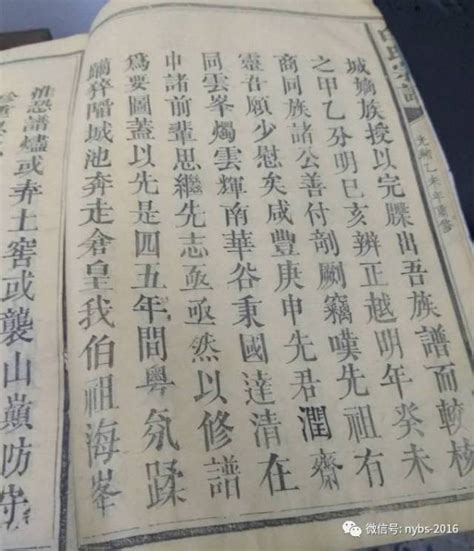 氏宗譜
光緒乙未年重
城嫡族授以完牒出吾族譜而較核
之甲乙分明巳亥辨正越明年癸未
商同族諸公善付剞劂竊嘆先祖有
靈吾願少慰矣咸豐庚申先君潤齋
同雲峯燭雲輝南華谷秉國達清在
申諸前輩思繼先志亟亟然以修譜
為要圖蓋以先是四五年間粵氛蹂
躪猝城池奔走倉皇我伯祖海峯
恐譜燼或弆土窖或襲山巔防守
微信号: nybs-2016